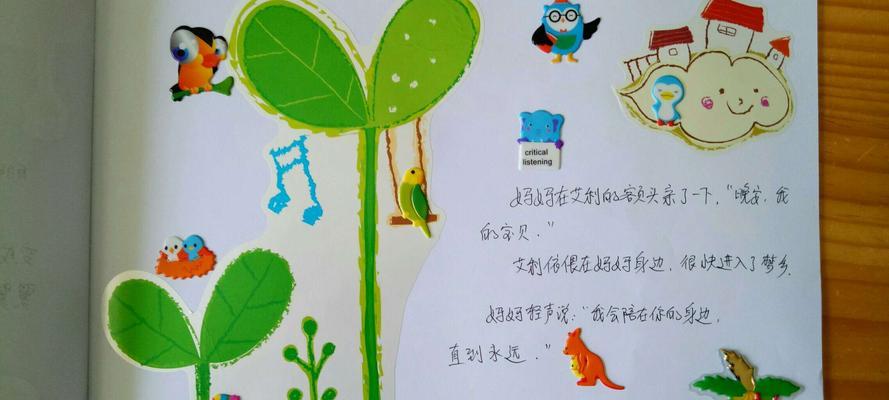 critical
listening
妈妈在艾利的额头亲了一下，“晚安，我
的宝贝．”
艾利依偎在妈妈身边，很快进入了梦乡．
妈妈轻声说：“我会陪在你的身边，
直到永远．”